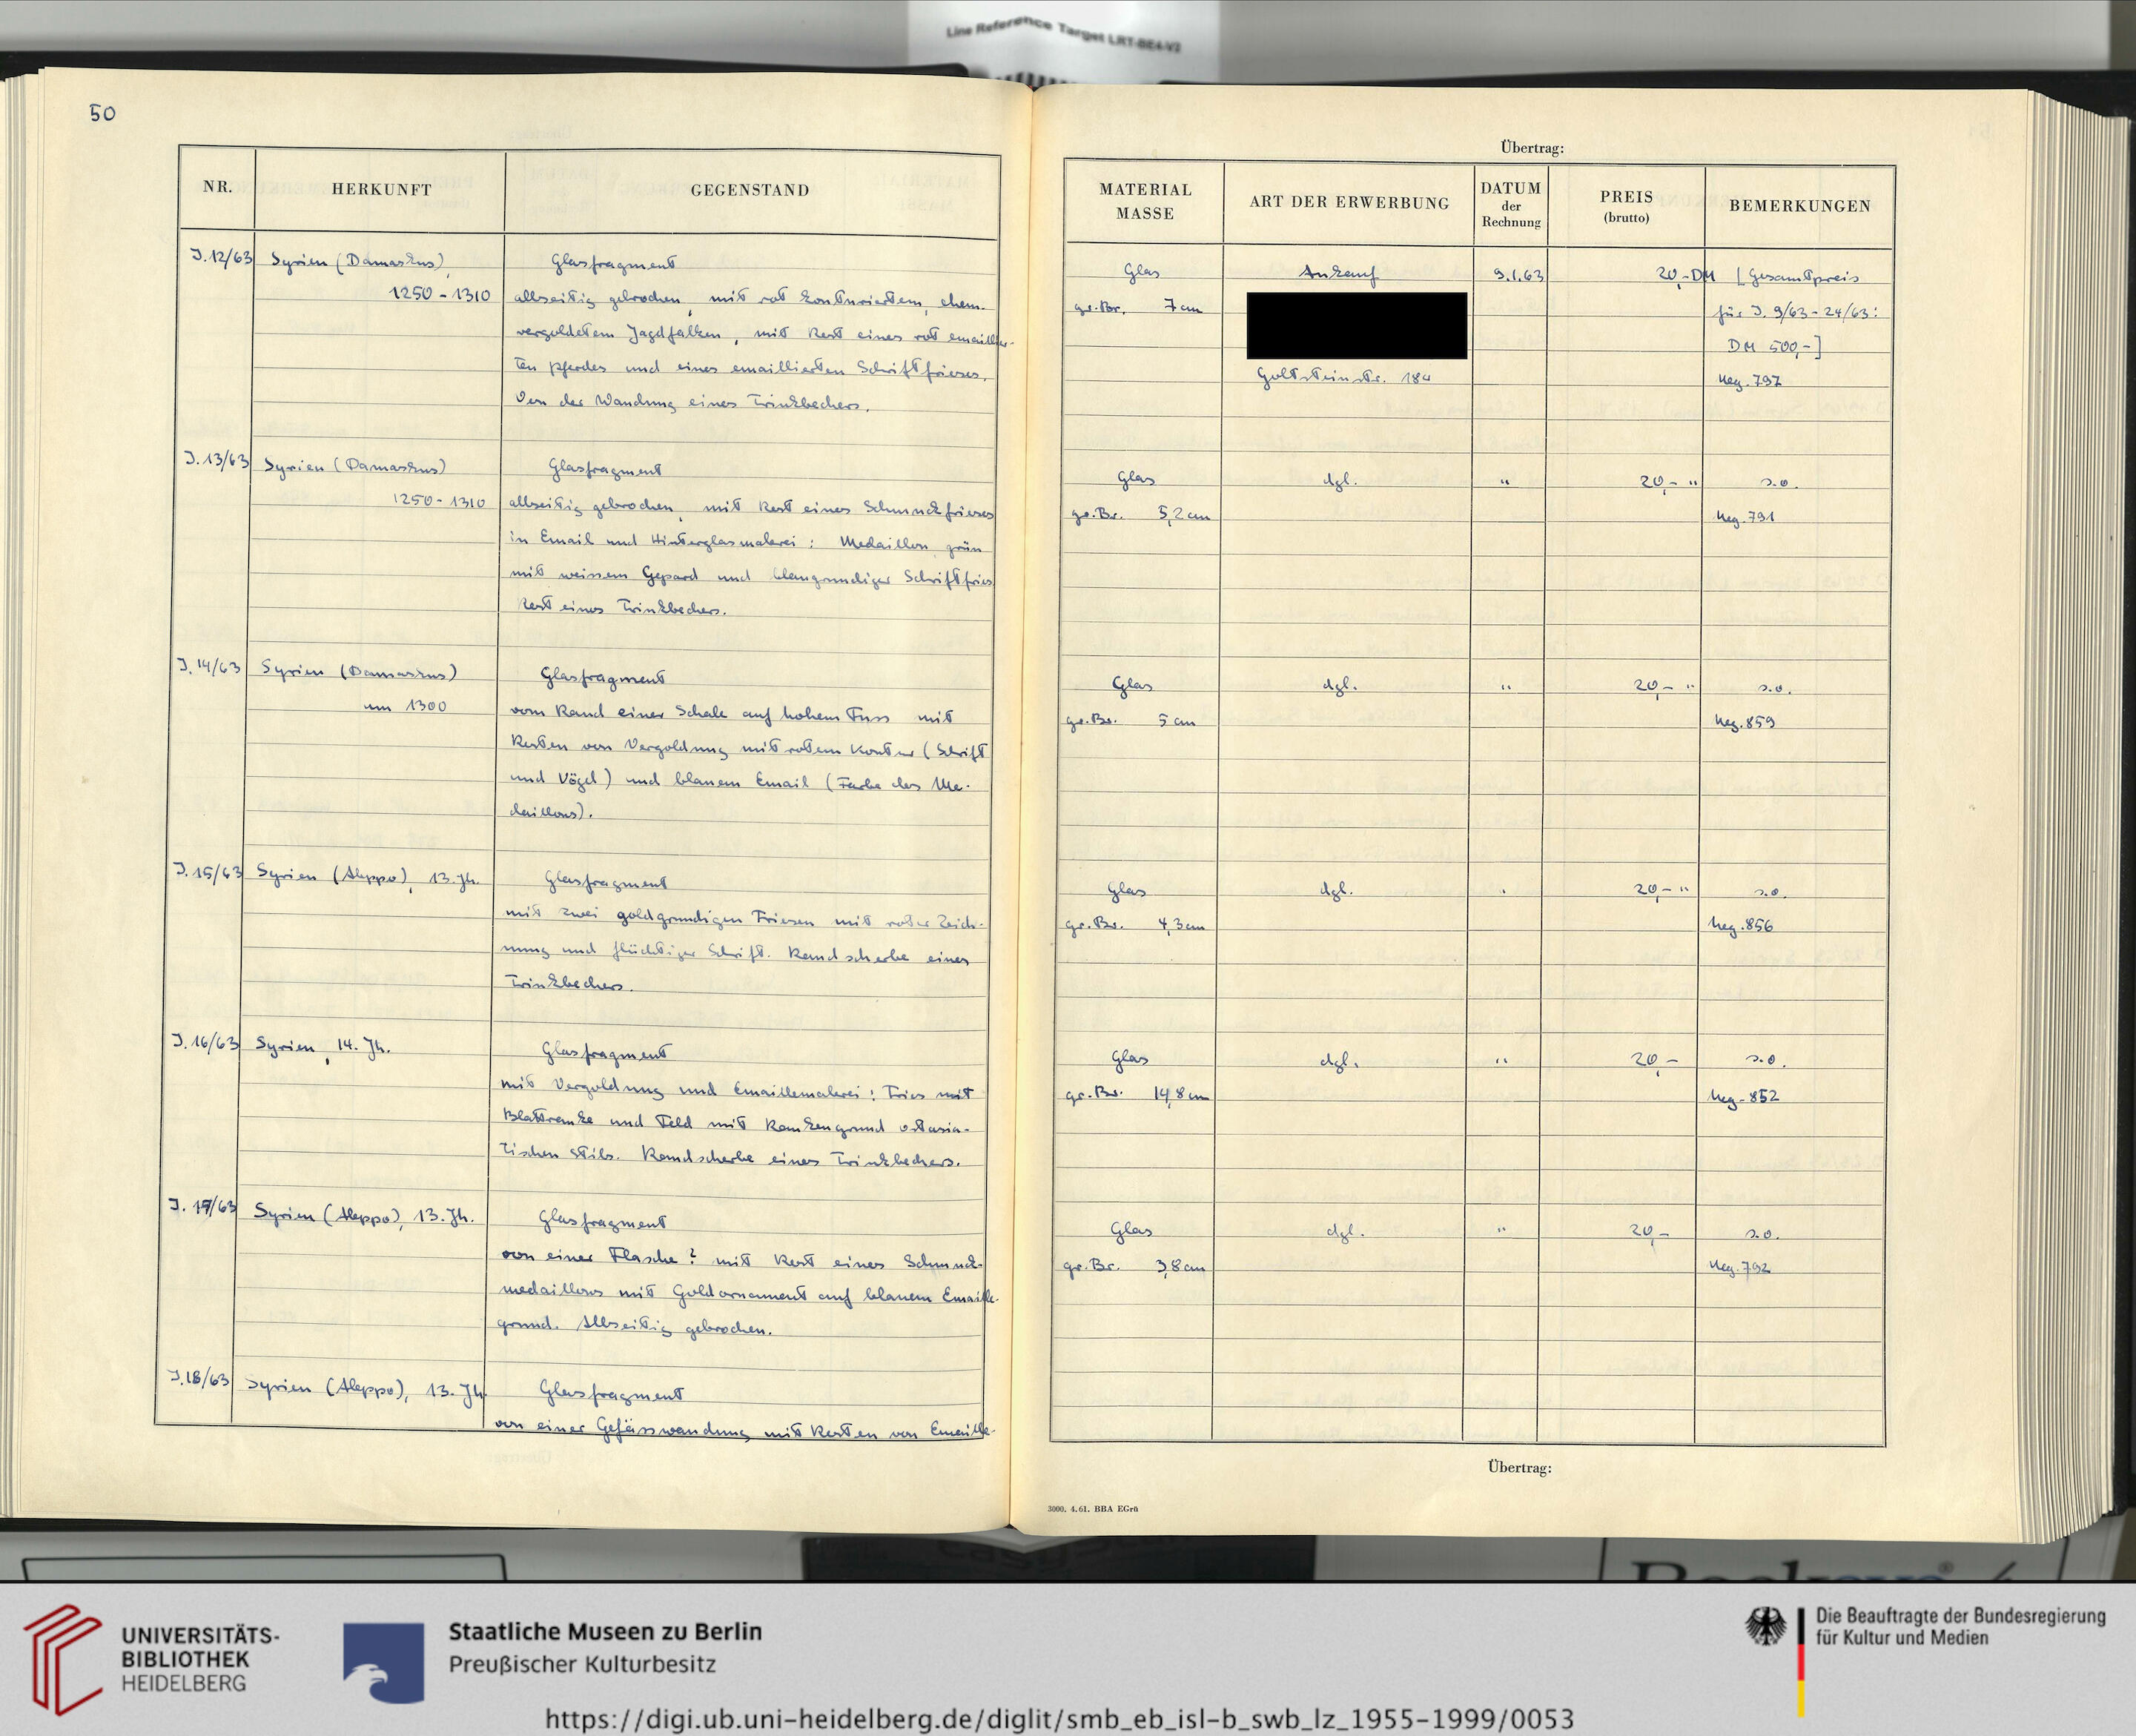 Line Reference Target LRT-BE4-V2
50
NR.
HERKUNFT
GEGENSTAND
J.12/63
Syrien (Damaskus),
1250-1310
Glasfragment
allseitig gebrochen, mit rot konturiertem, ehem.
vergoldetem Jagdfalken, mit Rest eines rot emaillier-
ten Pferdes und eines emaillierten Schriftfrieses.
Von der Wandung eines Trinkbechers.
J.13/63
Syrien (Damaskus)
1250-1310
Glasfragment
allseitig gebrochen, mit Rest eines Schmuckfrieses
in Email und Hinterglasmalerei: Medaillon grün
mit weissem Gepard und blaugrundiger Schriftfries
Rest eines Trinkbechers.
J.14/63
Syrien (Damaskus)
um 1300
Glasfragment
vom Rand einer Schale auf hohem Fuss mit
Resten von Vergoldung mit rotem Kontur (Schrift
und Vögel) und blauem Email (Farbe des Me-
daillons).
J.15/63
Syrien (Aleppo), 13.Jh.
Glasfragment
mit zwei goldgrundigen Friesen mit roter Zeich-
nung und flüchtiger Schrift. Randscherbe eines
Trinkbechers.
J.16/63
Syrien, 14. Jh.
Glasfragment
mit Vergoldung und Emaillemalerei: Fries mit
Blattranke und Feld mit Rankengrund ostasia-
tischen Stils. Randscherbe eines Trinkbechers.
J.17/63
Syrien (Aleppo), 13.Jh.
Glasfragment
von einer Flasche? mit Rest eines Schmuck-
medaillons mit Goldornament auf blauem Emaille-
grund. Allseitig gebrochen.
J.18/63
Syrien (Aleppo), 13. Jh.
Glasfragment
von einer Gefässwandung mit Resten von Emaille-
Übertrag:
MATERIAL
MASSE
ART DER ERWERBUNG
DATUM
der
Rechnung
PREIS
(brutto)
BEMERKUNGEN
Glas
gr.Br. 7 cm
Ankauf
Goltsteinstr. 184
9.1.63
20,-DM
[Gesamtpreis
für J. 9/63-24/63:
DM 500,-]
Neg.797
Glas
gr.Br. 5,2 cm
dgl.
"
20,- "
s.o.
Neg.791
Glas
gr.Br. 5 cm
dgl.
"
20,- "
s.o.
Neg.859
Glas
gr.Br. 4,3 cm
dgl.
"
20,- "
s.o.
Neg.856
Glas
gr.Br. 14,8 cm
dgl.
"
20,-
s.o.
Neg.852
Glas
gr.Br. 3,8 cm
dgl.
"
20,-
s.o.
Neg.792
Übertrag:
3000. 4.61. BBA EGrü
UNIVERSITÄTS-
BIBLIOTHEK
HEIDELBERG
Staatliche Museen zu Berlin
Preußischer Kulturbesitz
Die Beauftragte der Bundesregierung
für Kultur und Medien
https://digi.ub.uni-heidelberg.de/diglit/smb_eb_isl-b_swb_lz_1955-1999/0053